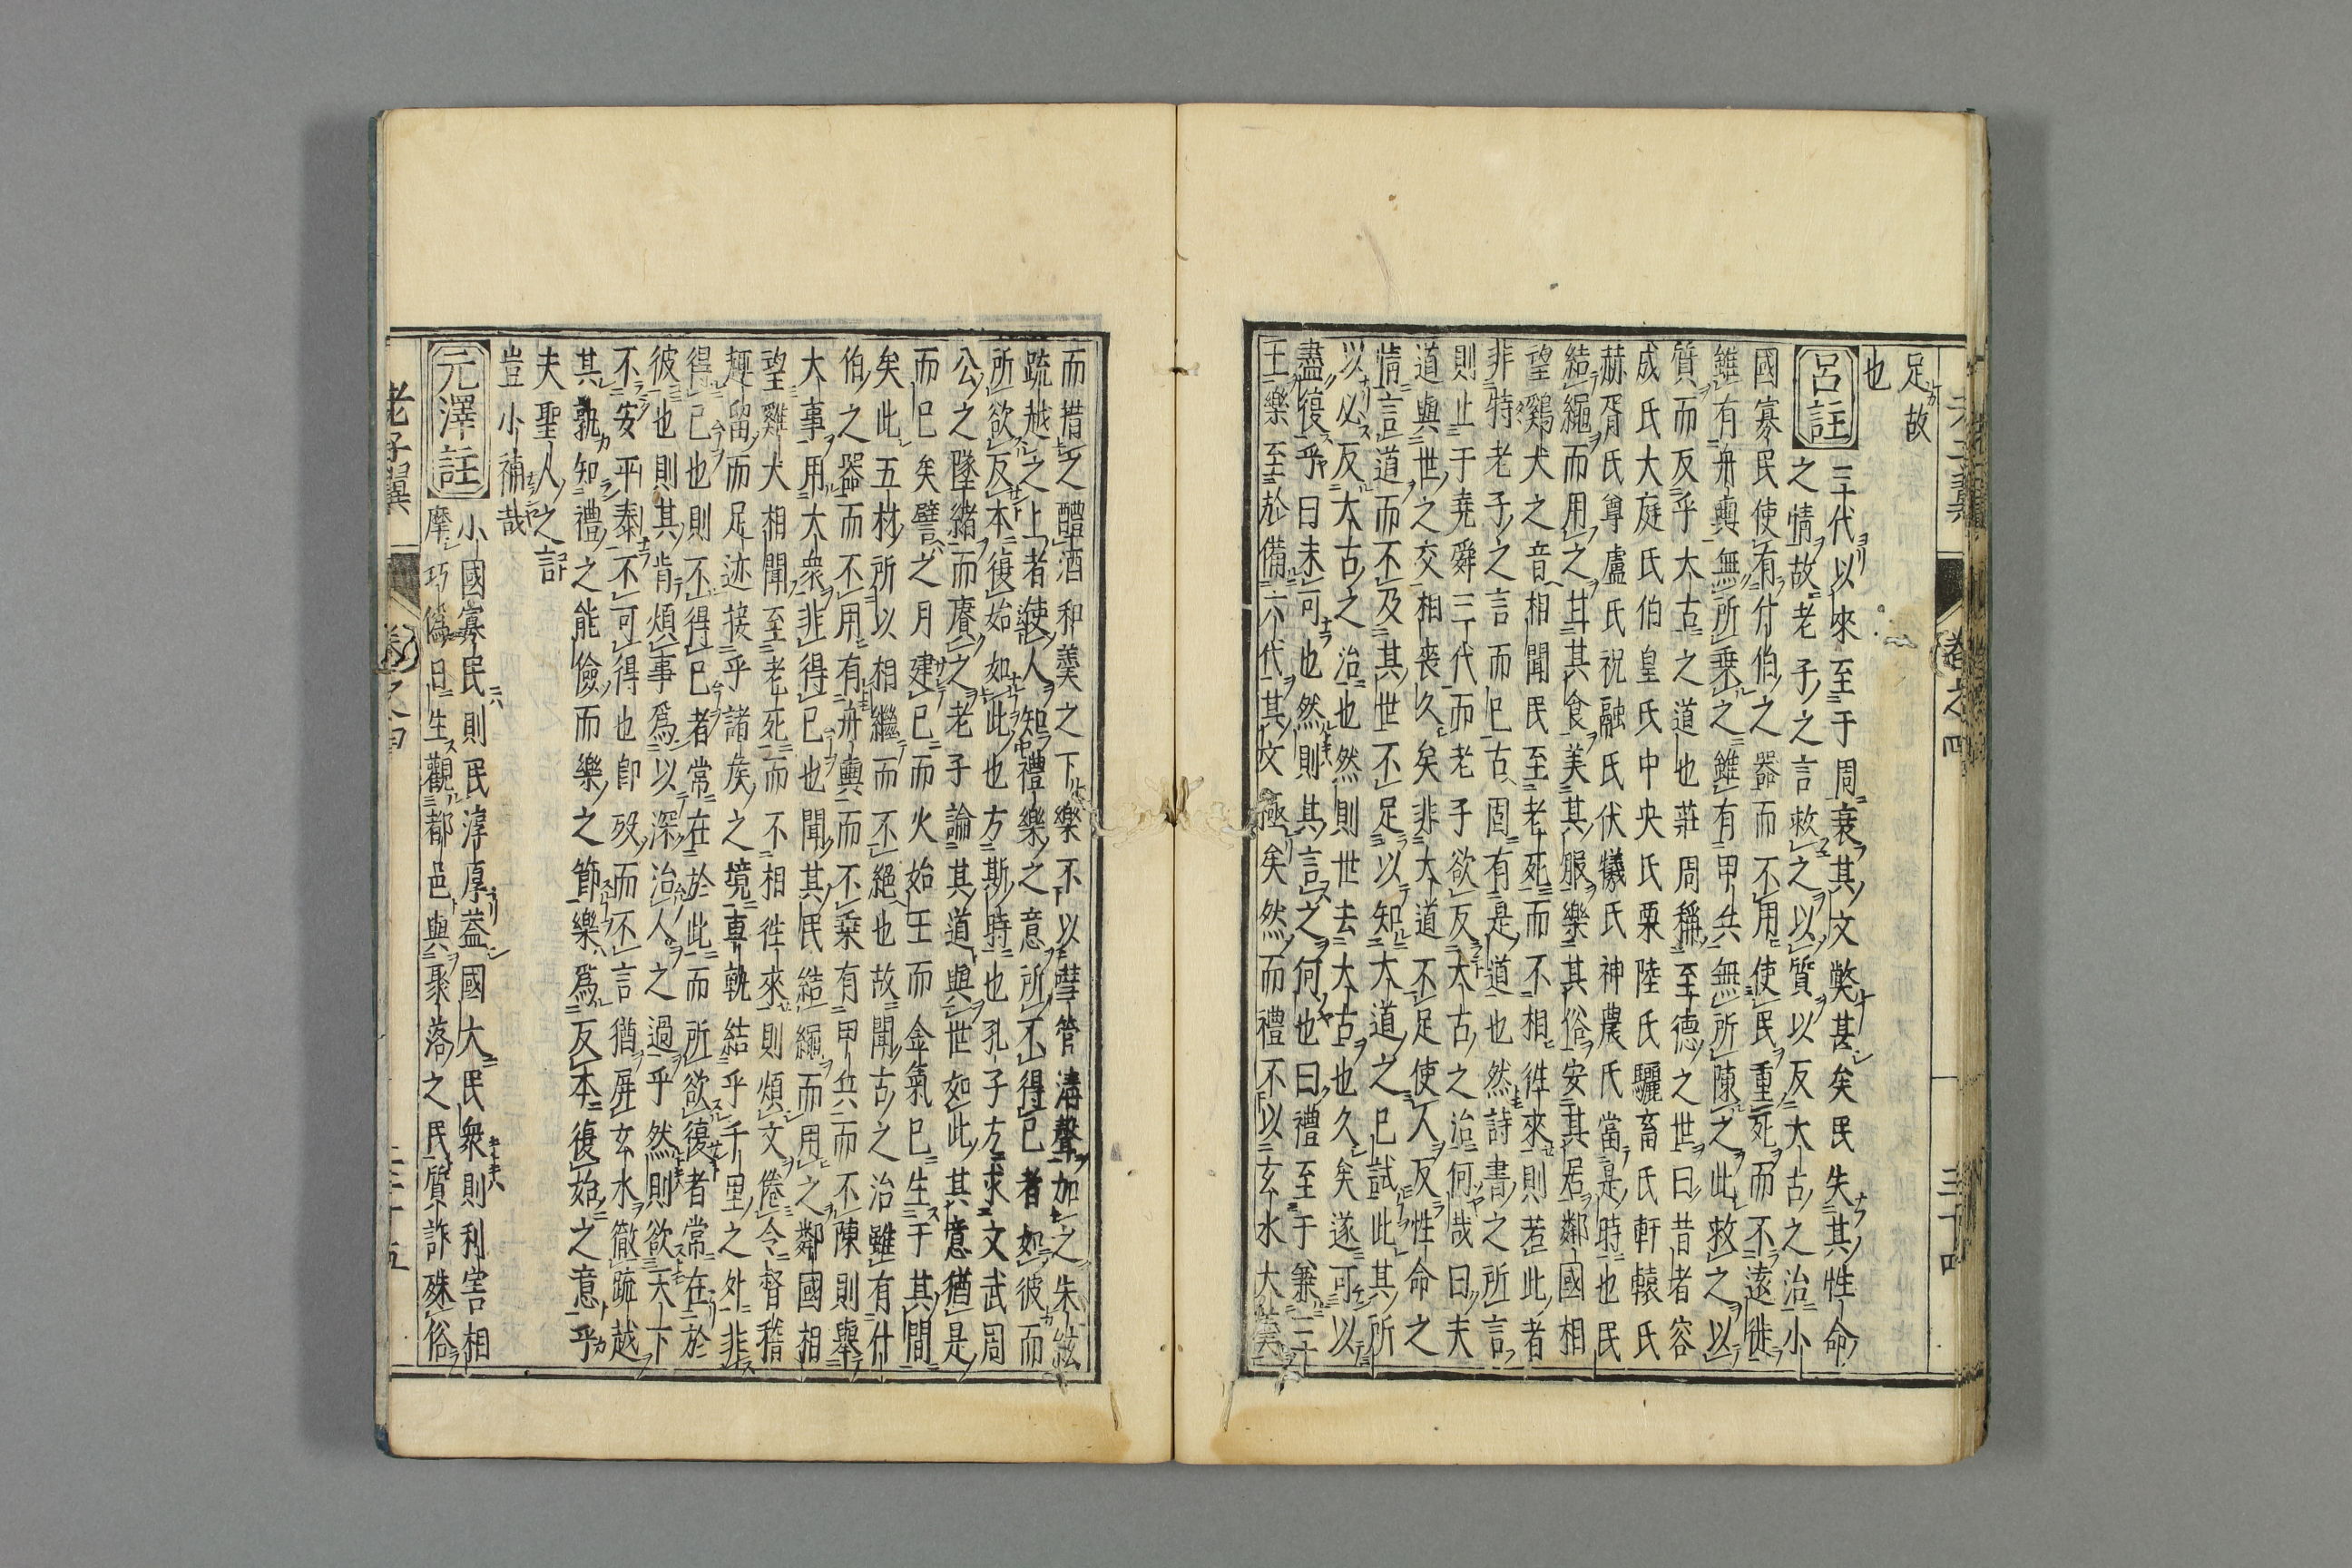 足故
也
呂註
三代以來至于周衰其文弊甚矣民失其性命
之情故老子之言救之以質以反大古之治小
國寡民使有什伯之器而不用使民重死而不遠徙
雖有舟輿無所乗之雖有甲兵無所陳之此救之以
質而反乎大古之道也莊周稱至德之世曰昔者容
成氏大庭氏伯皇氏中央氏栗陸氏驪畜氏軒轅氏
赫胥氏尊盧氏祝融氏伏犧氏神農氏當是時也民
結繩而用之甘其食美其服樂其俗安其居鄰國相
望鷄犬之音相聞民至老死而不相徃來則若此者
非特老子之言而已古固有是道也然詩書之所言
則止于堯舜三代而老子欲反大古之治何哉曰夫
道與世之交相喪久矣非大道不足使人反性命之
情言道而不及其世不足以知大道之已試此其所
以必反大古之治也然則世去大古也久矣遂可以
盡復乎曰未可也然則其言之何也曰禮至于兼三
王樂至於備六代其文極矣然而禮不以玄水大羹
而措之醴酒和羹之下樂不以嘒管清聲加之朱絃
疏越之上者使人知禮樂之意所不得已者如彼而
所欲反本復始如此也方斯時也孔子方求文武周
公之墜緒而賡之老子論其道與世如此其意猶是
而已矣譬之月建已而火始王而金氣已生于其間
矣此五材所以相繼而不絕也故聞古之治雖有什
伯之器而不用有舟輿而不乗有甲兵而不陳則舉
大事用大衆非得已也聞其民結繩而用之鄰國相
望雞犬相聞至老死而不相徃來則煩文倦令督稽
趣留而足迹接乎諸侯之境車軌結乎千里之外非
得已也則不得已者常在於此而所欲復者常在於
彼也則其肯煩事爲以深治人之過乎然則欲天下
不安平泰不可得也卽歿而不言猶屏玄水徹疏越
其孰知禮之能儉而樂之節樂爲反本復始之意乎
夫聖人之言
豈小補哉
元澤註
小國寡民則民淳厚蓋國大民衆則利害相
摩巧僞日生觀都邑與聚落之民質詐殊俗
老子翼
卷之四
三十五
卷之四
三十四